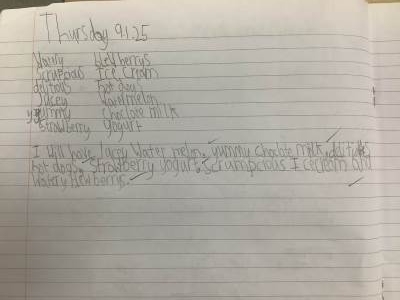 Thursday 9.1.25
Watery blewberrys
Scrumpcious Ice cream
delitous hot dogs
Juicey Watermelon
yummy choclate milk
Strawberry Yogurt
I will have Jucey Water melon, yummy choclate milk, delitous
hot dogs, strawberry yogurt, scrumpcious Icecream and
Watery blewberrys.